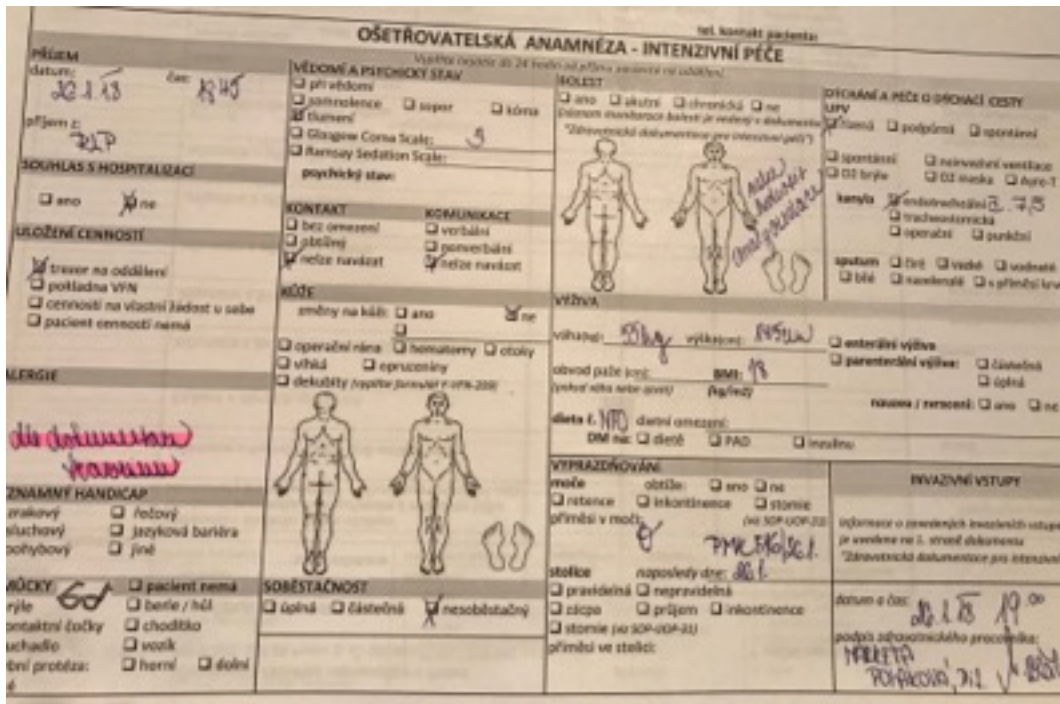 tel. kontakt pacienta:
OŠETŘOVATELSKÁ ANAMNÉZA - INTENZIVNÍ PÉČE
Vyplňte nejdéle do 24 hodin od příjmu pacienta na oddělení.
PŘÍJEM
datum: čas:
26.1.18 18 45
příjem z:
RLP
SOUHLAS S HOSPITALIZACÍ
ano ne
ULOŽENÍ CENNOSTÍ
trezor na oddělení
pokladna VFN
cennosti na vlastní žádost u sebe
pacient cennosti nemá
ALERGIE
dle
ZNAMNÝ HANDICAP
zrakový řečový
sluchový jazyková bariéra
pohybový jiné
MŮCKY pacient nemá
rýle berle / hůl
ontaktní čočky chodítko
uchadlo vozík
bní protéza: horní dolní
VĚDOMÍ A PSYCHICKÝ STAV
při vědomí
somnolence sopor kóma
tlumení
Glasgow Coma Scale: 3
Ramsay Sedation Scale:
psychický stav:
KONTAKT KOMUNIKACE
bez omezení verbální
obtížný nonverbální
nelze navázat nelze navázat
KŮŽE
změny na kůži: ano ne
operační rána hematomy otoky
vlhká opruzeniny
dekubity (vyplňte formulář F-VFN-209)
SOBĚSTAČNOST
úplná částečná nesoběstačný
BOLEST
ano akutní chronická ne
(záznam monitorace bolesti je veden v dokumentu
"Zdravotnická dokumentace pro intenzivní péči")
nelze
hodnotit
analgosedace
VÝŽIVA
váha(kg): 55kg výška(cm): 175cm
obvod paže (cm): BMI: 18
(pokud nelze zjistit) (kg/m2)
dieta č. NPO dietní omezení:
DM na: dietě PAD inzulínu
VYPRAZDŇOVÁNÍ
moče obtíže: ano ne
retence inkontinence stomie
příměsi v moči: (viz SOP-UOP-21)
PMK 26.1.
stolice naposledy dne: 26.1.
pravidelná nepravidelná
zácpa průjem inkontinence
stomie (viz SOP-UOP-21)
příměsi ve stolici:
DÝCHÁNÍ A PÉČE O DÝCHACÍ CESTY
UPV
řízená podpůrná spontánní
spontánní neinvazivní ventilace
O2 brýle O2 maska Ayre-T
kanyla endotracheální č. 7,5
tracheostomická
operační punkční
sputum čiré vazké vodnaté
bílé nazelenalé s příměsí krve
enterální výživa
parenterální výživa: částečná
úplná
nauzea / zvracení: ano ne
INVAZIVNÍ VSTUPY
informace o zavedených invazivních vstupech
je uvedena na 1. straně dokumentu
"Zdravotnická dokumentace pro intenzivní
datum a čas:
26.1.18 19 00
podpis zdravotnického pracovníka:
MARKÉTA